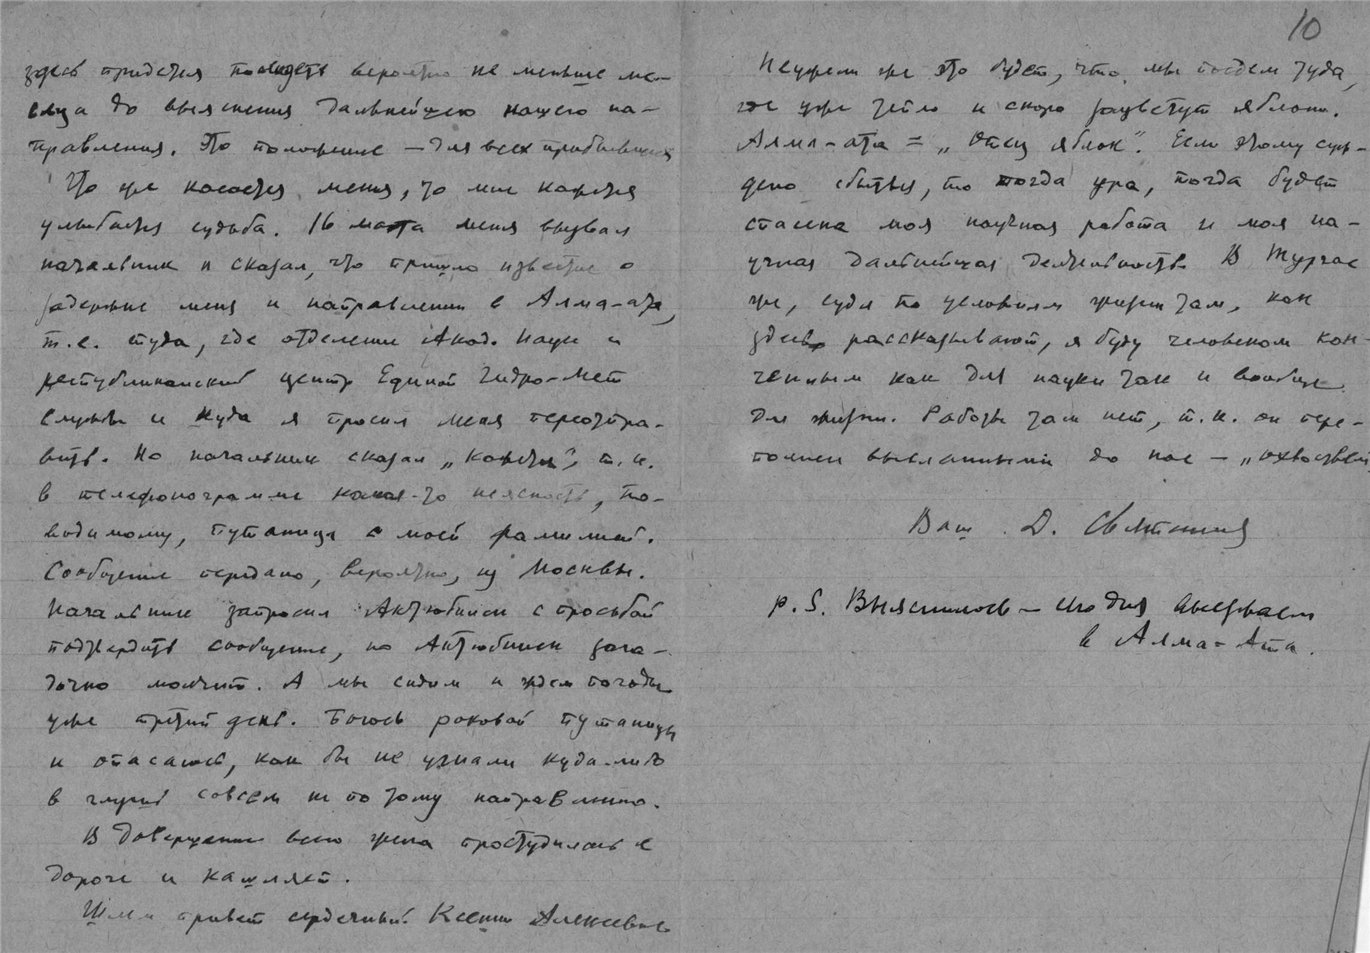 10
здесь придется посидеть вероятно не меньше ме-
сяца до выяснения дальнейшего нашего на-
правления. Это положение — для всех прибывших
Что же касается меня, то мне кажется
улыбается судьба. 16 марта меня вызвал
начальник и сказал, что пришло известие о
задержке меня и направлении в Алма-ата,
т.е. туда, где отделение Акад. Наук и
республиканский центр Единой Гидро-Мет
службы и куда я просил меня переотпра-
вить. Но начальник сказал „кажется", т.к.
в телефонограмме какая-то неясность, по-
видимому, путаница с моей фамилией.
Сообщение передано, вероятно, из Москвы.
Начальник запросил Актюбинск с просьбой
подтвердить сообщение, но Актюбинск зага-
дочно молчит. А мы сидим и ждем погоды
уже третий день. Боюсь роковой путаницы
и опасаюсь, как бы не угнали куда-либо
в глушь совсем не по тому направлению.
В довершение всего жена простудилась в
дороге и кашляет.
Шлем привет сердечный Ксении Алексеевне
Неужели же это будет, что мы поедем туда,
где уже тепло и скоро зацветут яблони.
Алма-ата = „Отец яблок". Если этому суж-
дено сбыться, то тогда ура, тогда будет
спасена моя научная работа и моя на-
учная дальнейшая деятельность В Тургае
же, судя по условиям жизни там, как
здесь рассказывают, я буду человеком кон-
ченным как для науки так и вообще
для жизни. Работы там нет, т.к. он пере-
полнен высланными до нас —
Ваш Д. Святский
P.S. Выяснилось — сегодня выезжаем
в Алма-Ата.